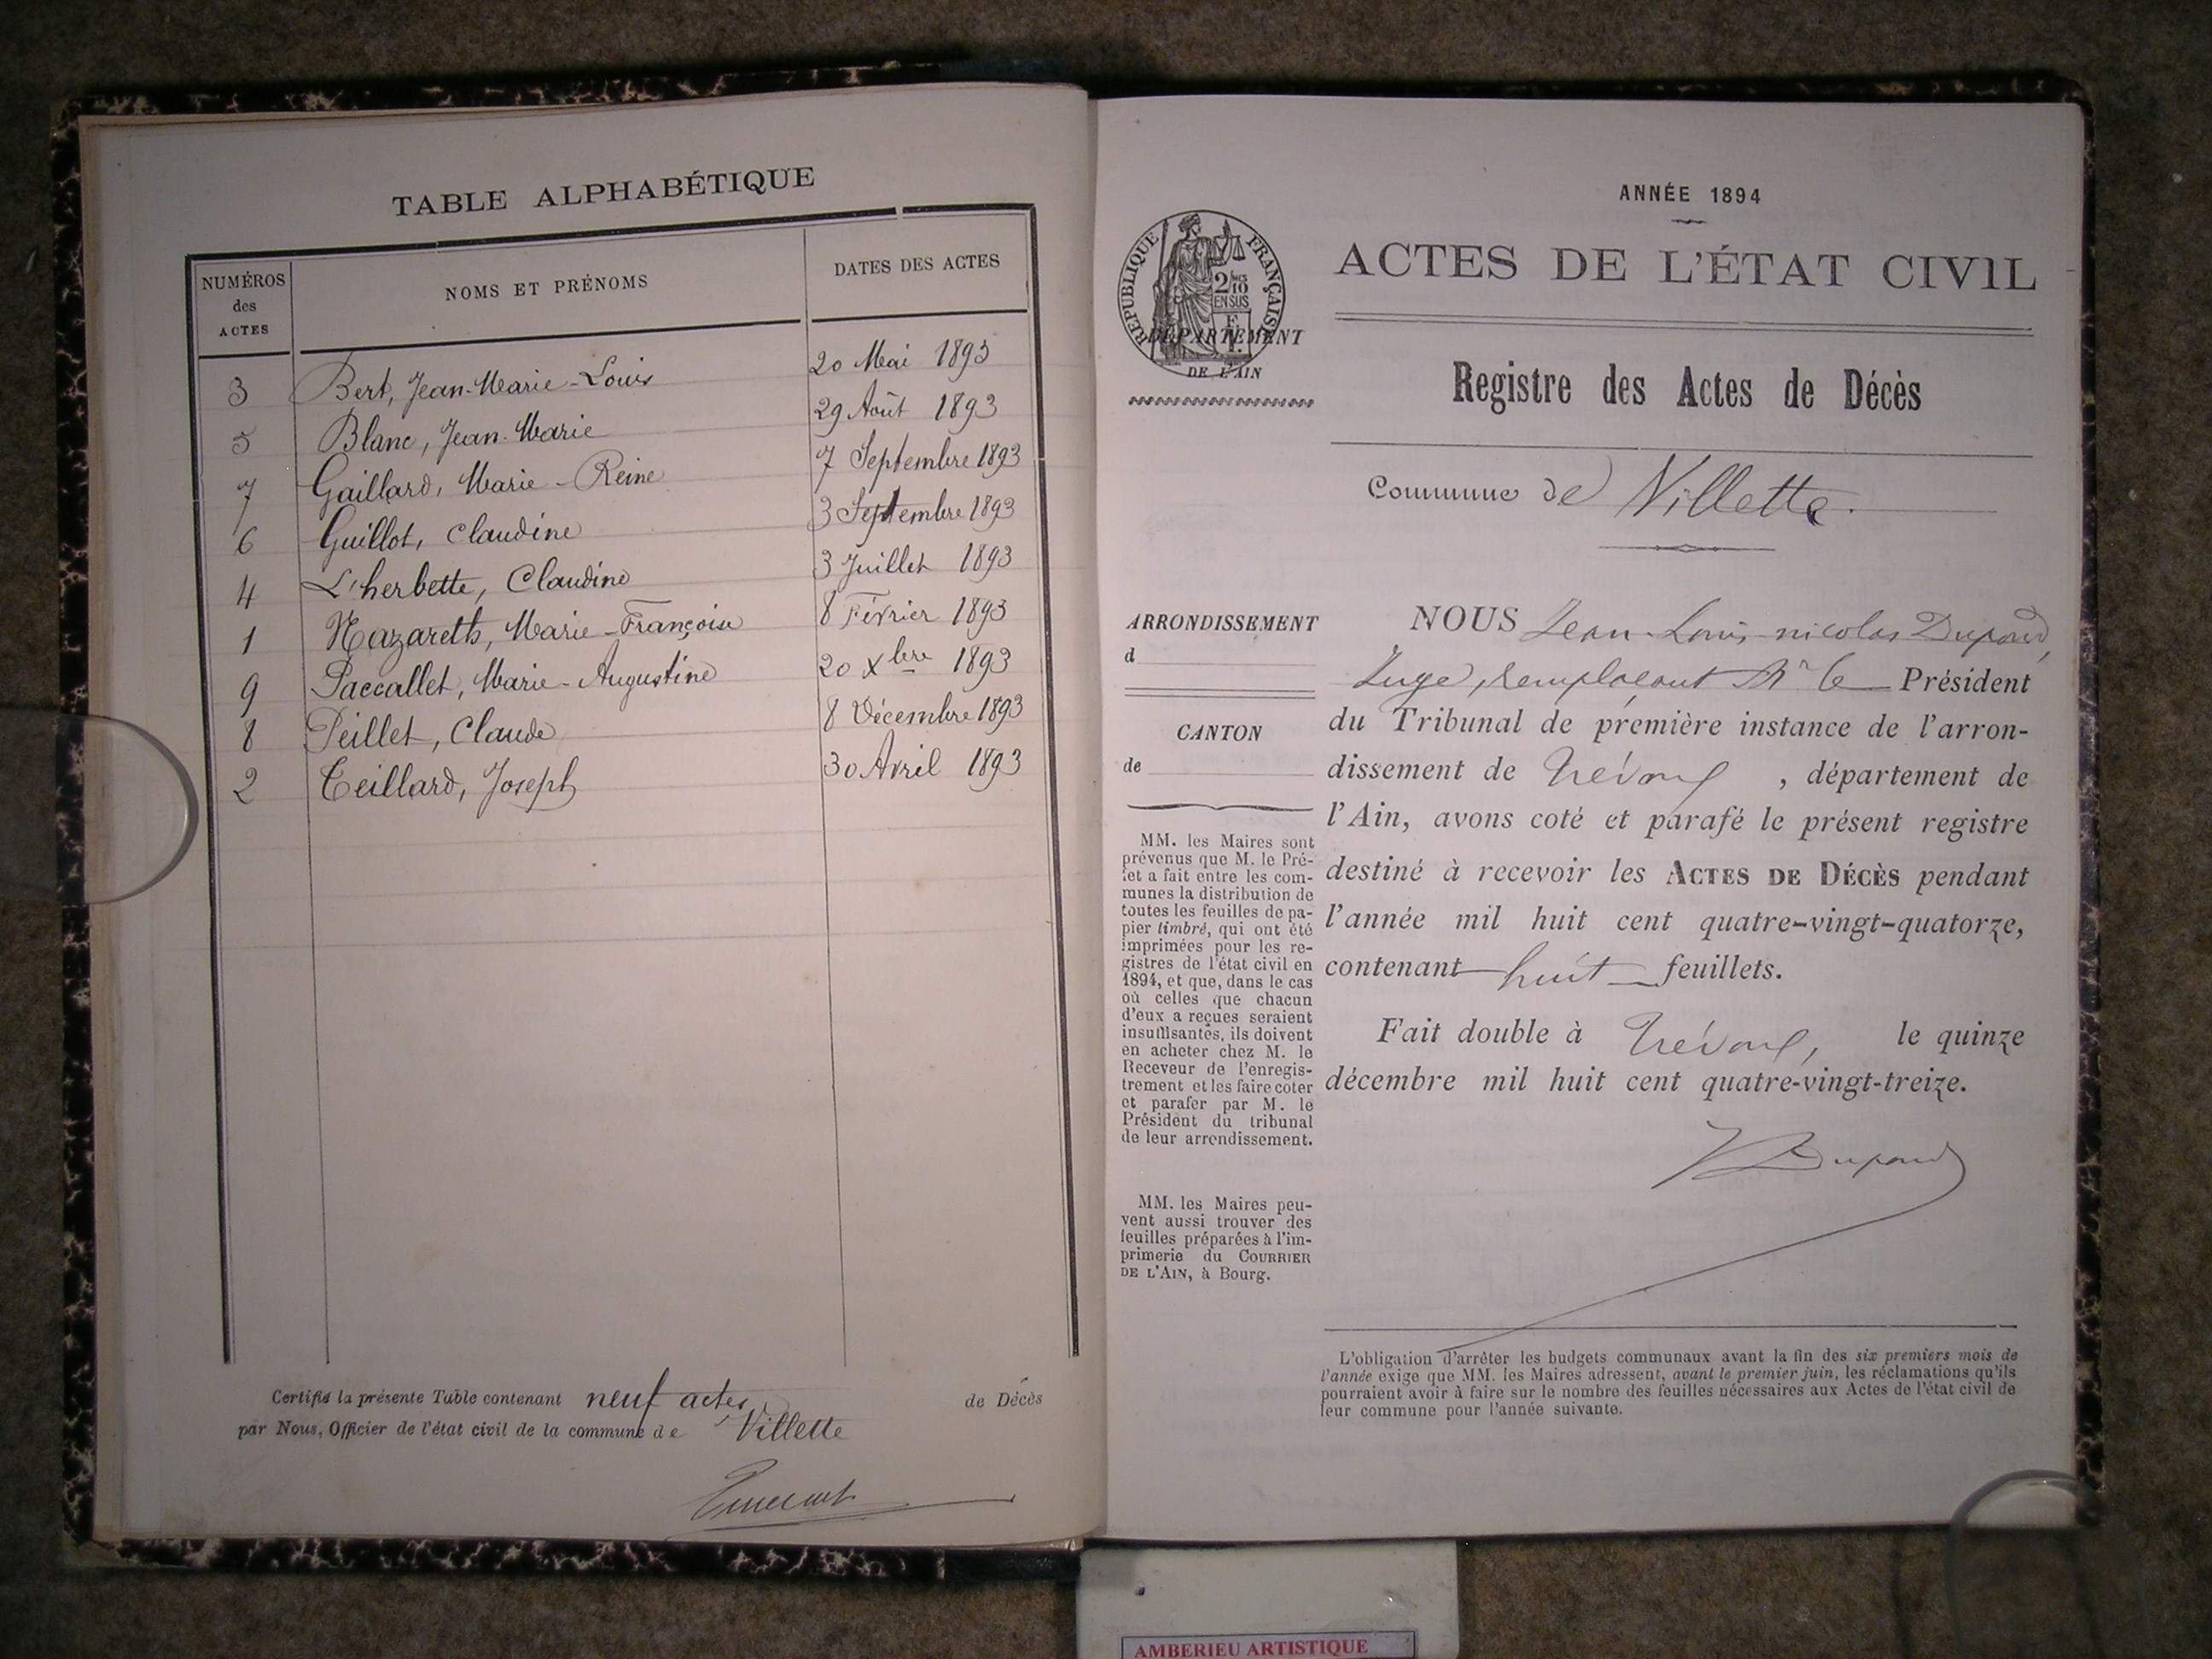 TABLE ALPHABÉTIQUE
NUMÉROS des ACTES NOMS ET PRÉNOMS DATES DES ACTES
3 Bert, Jean-Marie-Louis 20 Mai 1893
5 Blanc, Jean-Marie 29 Août 1893
7 Gaillard, Marie-Reine 7 Septembre 1893
6 Guillot, Claudine 3 Septembre 1893
4 L'herbette, Claudine 3 Juillet 1893
1 Nazareth, Marie-Françoise 8 Février 1893
9 Paccallet, Marie-Augustine 20 Xbre 1893
8 Peillet, Claude 8 Décembre 1893
2 Teillard, Joseph 30 Avril 1893
Certifié la présente Table contenant neuf actes, de Décès
par Nous, Officier de l'état civil de la commune de Villette
ANNÉE 1894
ACTES DE L'ÉTAT CIVIL
RÉPUBLIQUE FRANÇAISE
2/10
EN SUS
DÉPARTEMENT
DE L'AIN
Registre des Actes de Décès
Commune de Villette.
ARRONDISSEMENT
d
CANTON
de
MM. les Maires sont
prévenus que M. le Pré-
fet a fait entre les com-
munes la distribution de
toutes les feuilles de pa-
pier timbré, qui ont été
imprimées pour les re-
gistres de l'état civil en
1894, et que, dans le cas
où celles que chacun
d'eux a reçues seraient
insuffisantes, ils doivent
en acheter chez M. le
Receveur de l'enregis-
trement et les faire coter
et parafer par M. le
Président du tribunal
de leur arrondissement.
MM. les Maires peu-
vent aussi trouver des
feuilles préparées à l'im-
primerie du COURRIER
DE L'AIN, à Bourg.
NOUS Jean-Louis-nicolas Dupond,
Juge, remplaçant Mr le Président
du Tribunal de première instance de l'arron-
dissement de Trévoux, département de
l'Ain, avons coté et parafé le présent registre
destiné à recevoir les ACTES DE DÉCÈS pendant
l'année mil huit cent quatre-vingt-quatorze,
contenant huit feuillets.
Fait double à Trévoux, le quinze
décembre mil huit cent quatre-vingt-treize.
Dupond
L'obligation d'arrêter les budgets communaux avant la fin des six premiers mois de
l'année exige que MM. les Maires adressent, avant le premier juin, les réclamations qu'ils
pourraient avoir à faire sur le nombre des feuilles nécessaires aux Actes de l'état civil de
leur commune pour l'année suivante.
AMBERIEU ARTISTIQUE